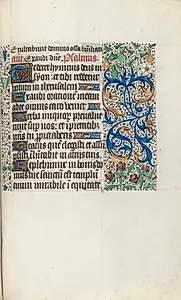 Exultabunt domino ossa humiliata
ant Exaudi dñe. Psalmus.
Te decet hymnus deus in
syon: et tibi reddetur
votum in iherusalem
Exaudi orationē meam
ad te omnis caro veniet
Verba iniquorū preualue
runt sup nos: et impietatib
nris tu propitiaberis
Beatus quē elegisti et assū
psisti: inhabitabit in atriis tuis
Replebimur in bonis do
mus tue sanctum est templū
tuum mirabile in equitate